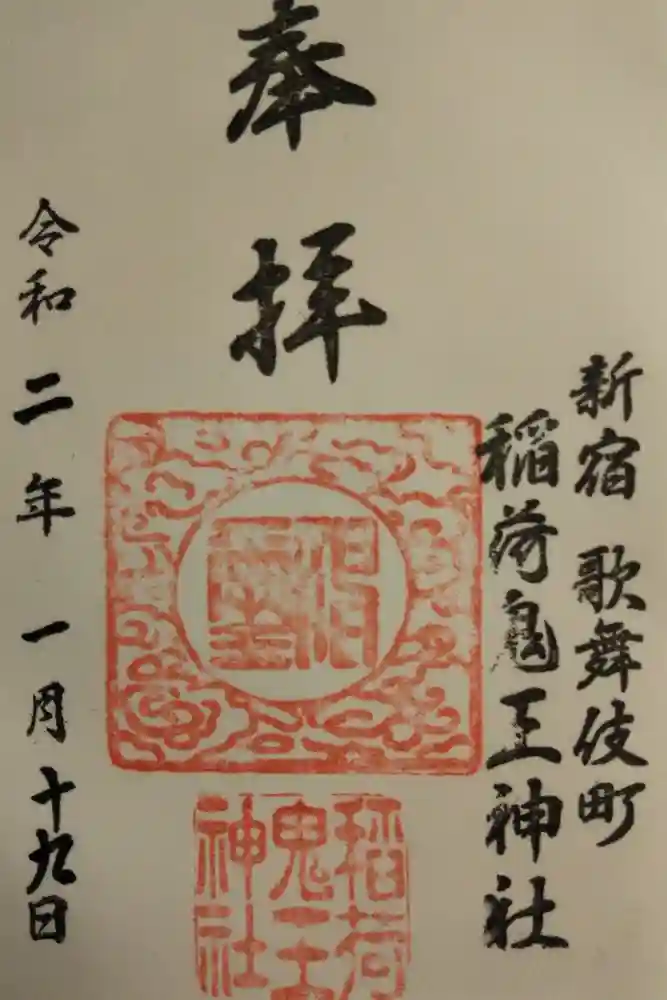 新宿 歌舞伎町
稲荷鬼王神社
奉拝
令和二年一月十九日
稲荷
鬼王
神社